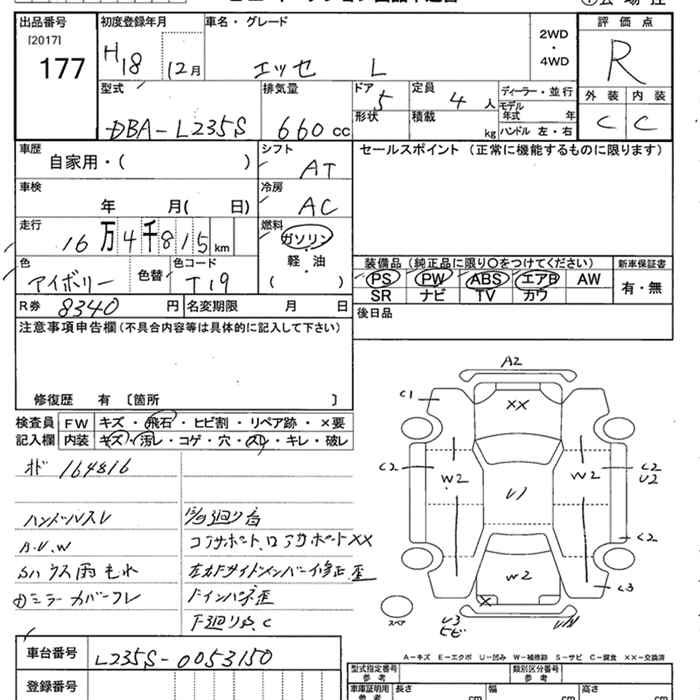 出品番号 初度登録年月 車名・グレード 評価点
[2017] 2WD・4WD
177 H18 12月 エッセ L R
型式 排気量 ドア 5 定員 4人 ディーラー・並行 外装 内装
形状 積載 kg モデル年式 年
DBA-L235S 660cc ハンドル 左・右 C C
車歴 自家用・( ) シフト AT セールスポイント(正常に機能するものに限ります)
車検 年 月( 日) 冷房 AC
走行 16万4千815km 燃料 ガソリン 軽・油 ( )
色 アイボリー 色替 色コード T19
装備品(純正品に限り○をつけてください) 新車保証書
PS PW ABS エアB AW 有・無
SR ナビ TV カワ
R券 8340円 名変期限 月 日 後日品
注意事項申告欄(不具合内容等は具体的に記入して下さい)
修復歴 有 〔箇所 〕
検査員 FW キズ・飛石・ヒビ割・リペア跡・×要
記入欄 内装 キズ・汚レ・コゲ・穴・スレ・キレ・破レ
164816
ハンドルスレ
A.U.W
カバー
A2
C1 XX
C2 W2 W2 C2
U2
U1
C2
W2 C3
X
スペア U3
ヒビ
車台番号 L235S-0053150
A-キズ E-エクボ U-凹み W-補修跡 S-サビ C-腐食 ××-交換済
登録番号 型式指定番号 類別区分番号
参考
車庫証明用 長さ cm 幅 cm 高さ cm
参考